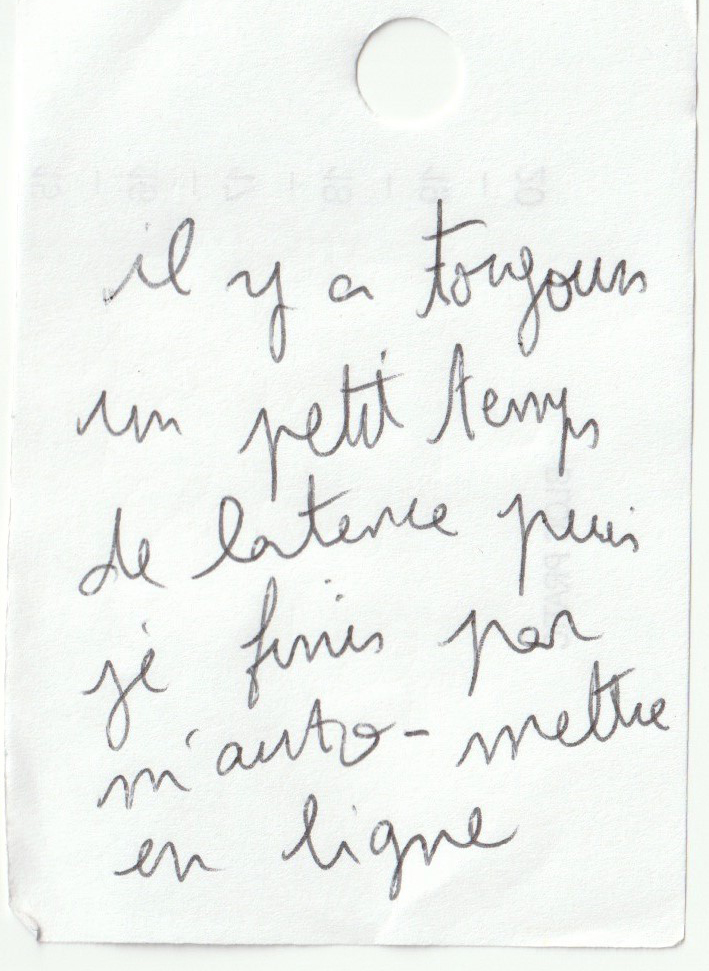 il y a toujours
un petit temps
de latence puis
je finis par
m'auto-mettre
en ligne